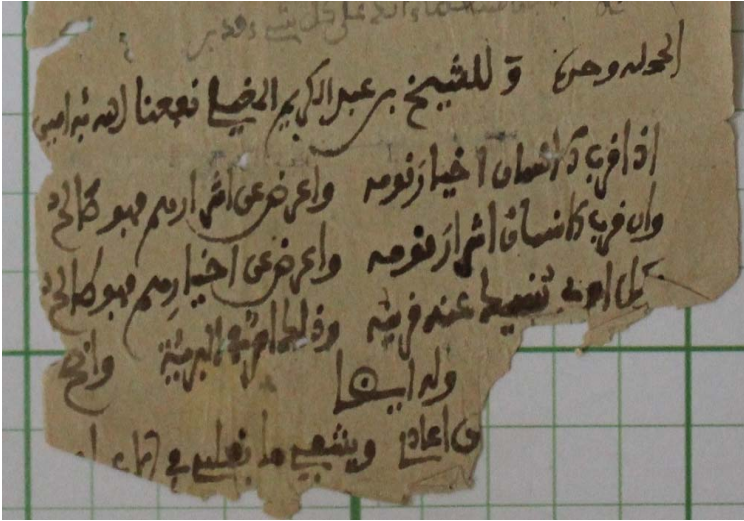 على كل شيء قدير
الحمد لله وحده وللشيخ بن عبد الكريم المغيلي نفعنا الله به امين
اذا قرب الانسان اخيار قومه واعرض عن اشرارهم فهو صالح
وان قرب الانسان اشرار قومه واعرض عن اخيارهم فهو طالح
وكل امرئ ينبيك عنه قرينه وذلك امر في البرية واضح
وله ايضا